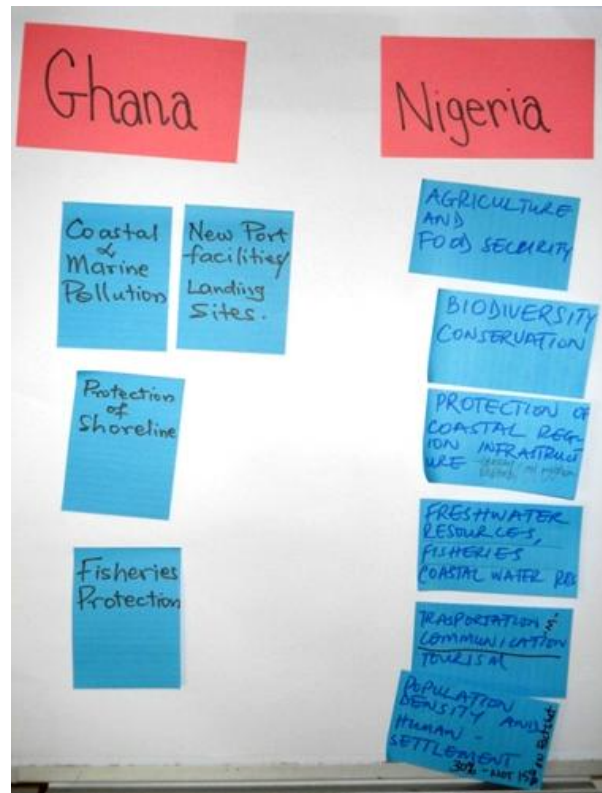 Ghana
Nigeria
Coastal
&
Marine
Pollution
New Port
facilities/
Landing
Sites.
Protection
of
Shoreline
Fisheries
Protection
AGRICULTURE
AND
FOOD SECURITY
BIODIVERSITY
CONSERVATION
PROTECTION OF
COASTAL REG-
ION INFRASTRUCT
URE
FRESHWATER
RESOURCES,
FISHERIES
COASTAL WATER RES
TRASPORTATION
COMMUNICATION
TOURISM
POPULATION
DENSITY AND
HUMAN -
SETTLEMENT
30% - NOT 15%